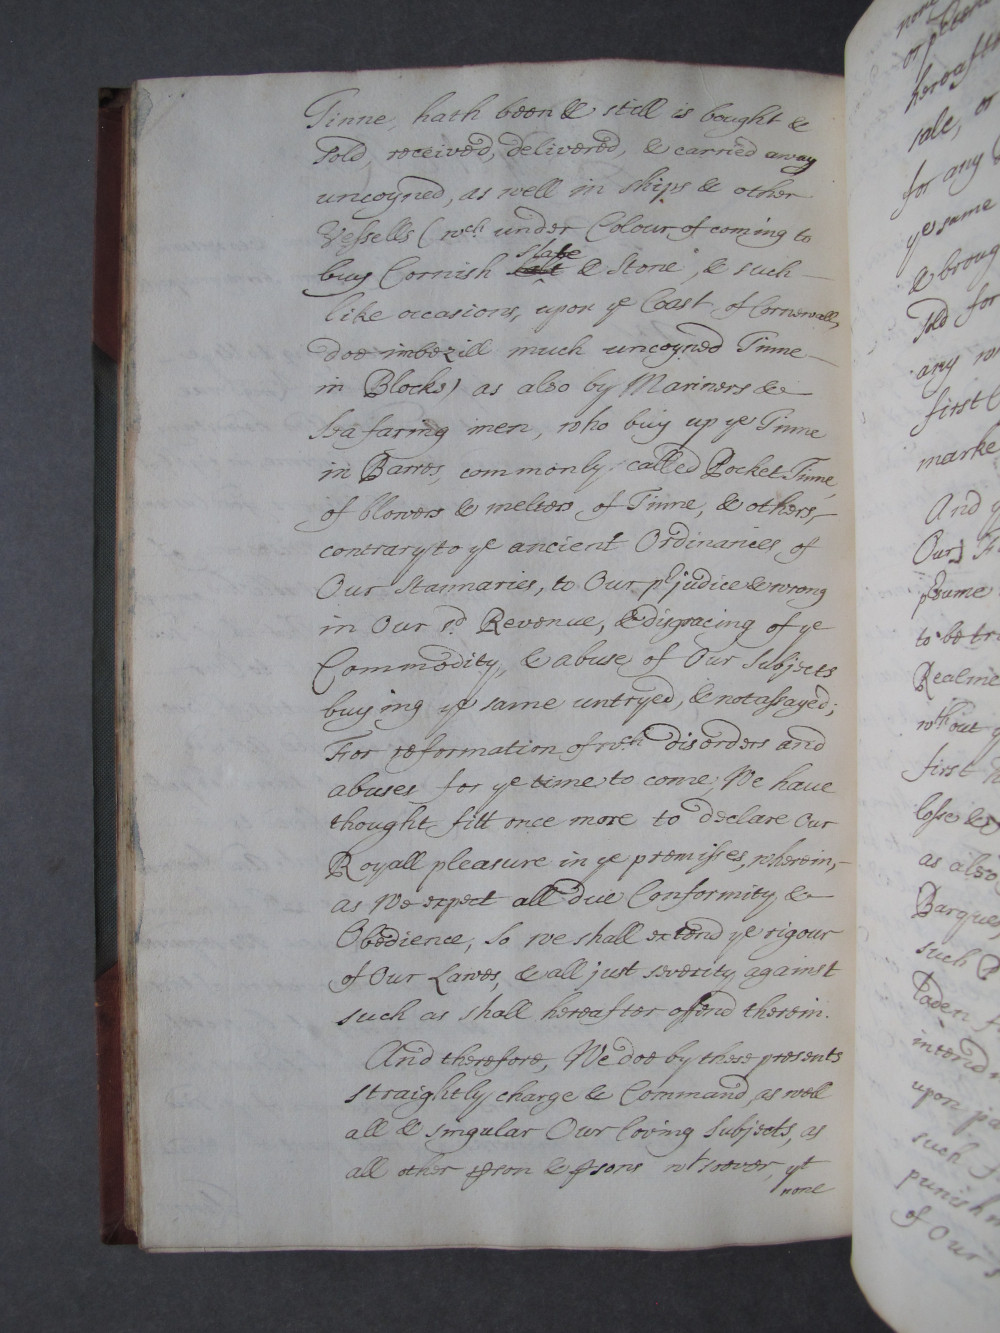 Tinne, hath been & still is bought &
sold, received, delivered, & carried away
uncoyned, as well in ships & other
Vessells (wch under Colour of coming to
slate
buy Cornish salt & Stone, & such
like occasions, upon ye Coast of Cornwall,
doe imbezill much uncoyned Tinne
in Blocks) as also by Mariners &
Seafaring men, who buy up ye Tinne
in Barres, commonly called Pocket Tinne,
of blowers & melters of Tinne, & others,
contrary to ye ancient Ordinances of
Our Stannaries, to Our pjudice & wrong
in Our sd Revenue, & disgracing of ye
Commodity, & abuse of Our Subjects
buying ye same untryed, & not assayed;
For reformation of wch disorders and
abuses for ye time to come, We have
thought fitt once more to declare Our
Royall pleasure in ye premisses, wherein,
as We expect all due Conformity &
Obedience, so we shall extend ye rigour
of Our Lawes, & all just severity against
such as shall hereafter offend therein.
And therefore, We doe by these presents
straightly charge & Command, as well
all & singular Our loving Subjects, as
all other pson & psons wtsoever, yt
none
hereafter
sale, or
for any
ye same
& broug
sold for
any
first
marke
And
Our
psume
to be tr
Realme
wthout
first
losse &
as also
Barque,
such
laden
intend
upon
such
punish
of Our